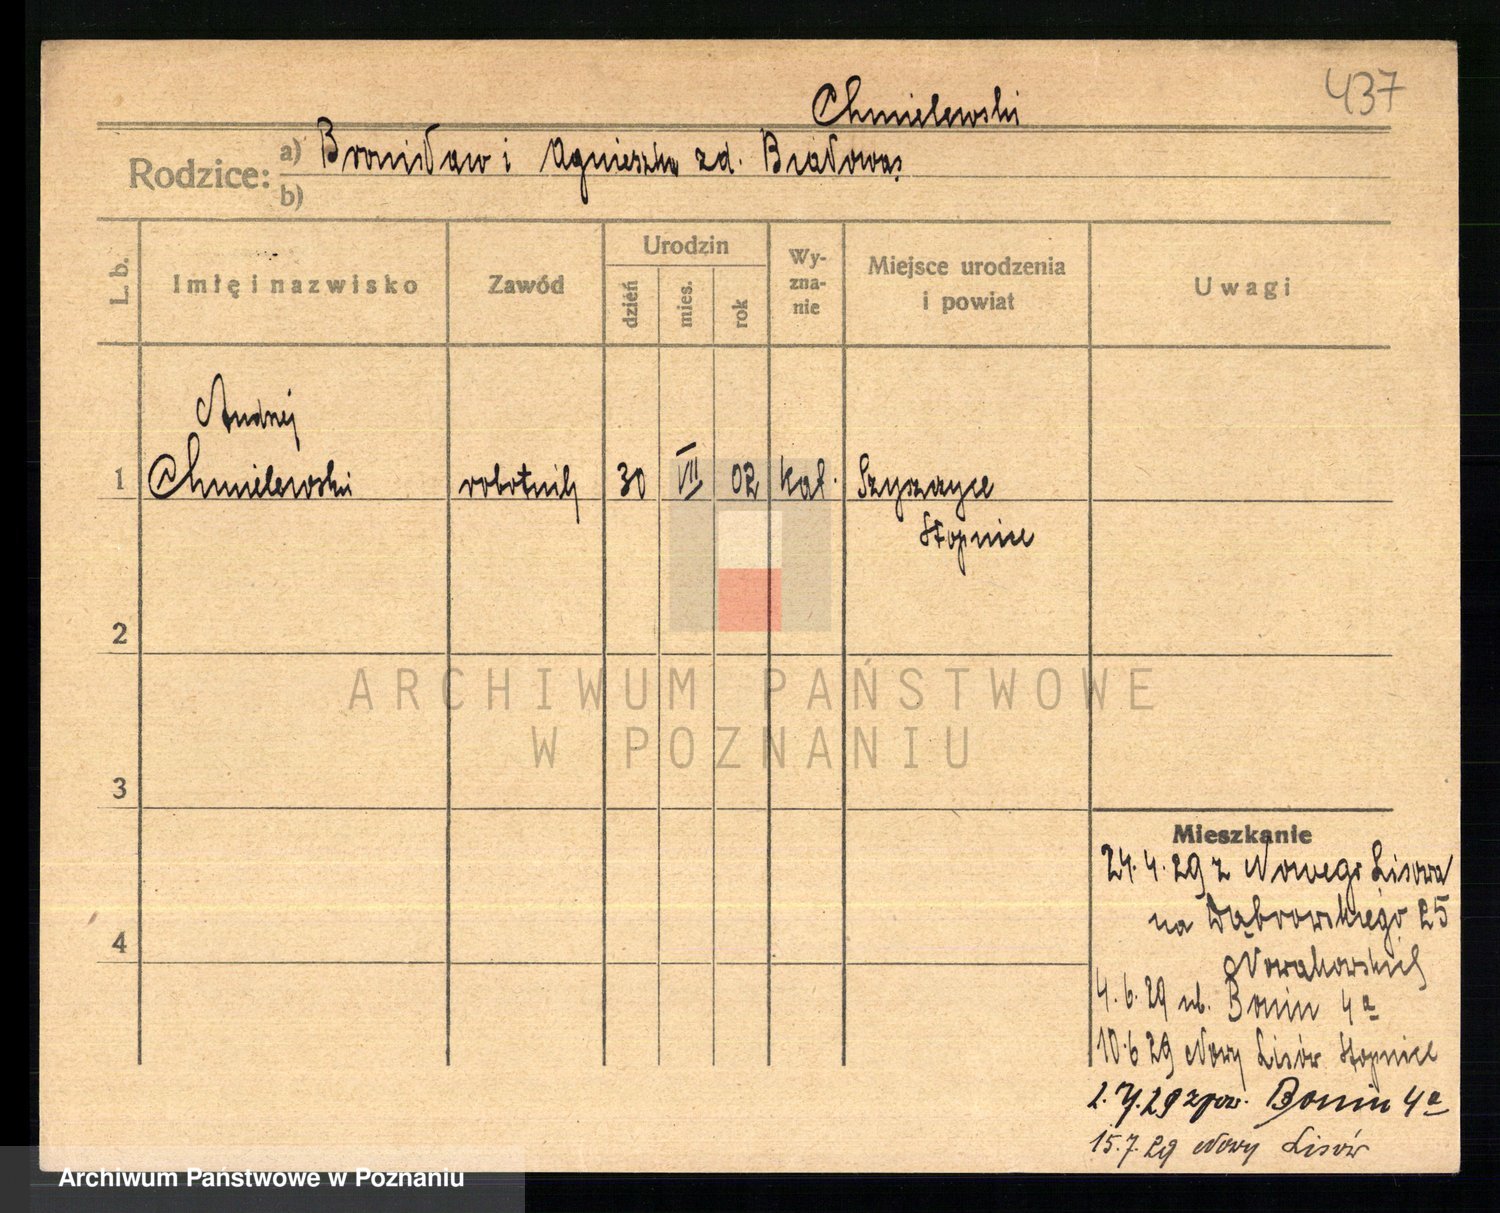 437
Chmielewski
Rodzice: a) Bronisław i Agnieszka zd. Białowąs
b)
L. b.
Imię i nazwisko
Zawód
Urodzin
dzień
mies.
rok
Wy-
zna-
nie
Miejsce urodzenia
i powiat
Uwagi
Andrzej
1 Chmielewski robotnik 30 VII 02 kat. Szyszczyce
Stopnice
2
3
4
Mieszkanie
24.4.29 z Nowego Lisowa
na Dąbrowskiego 25
Nowakowskich
4.6.29 ub. Bonin 4a
10.6.29 Nowy Lisów Stopnice
2.7.29 zpow. Bonin 4a
15.7.29 Nowy Lisów
ARCHIWUM PAŃSTWOWE
W POZNANIU
Archiwum Państwowe w Poznaniu